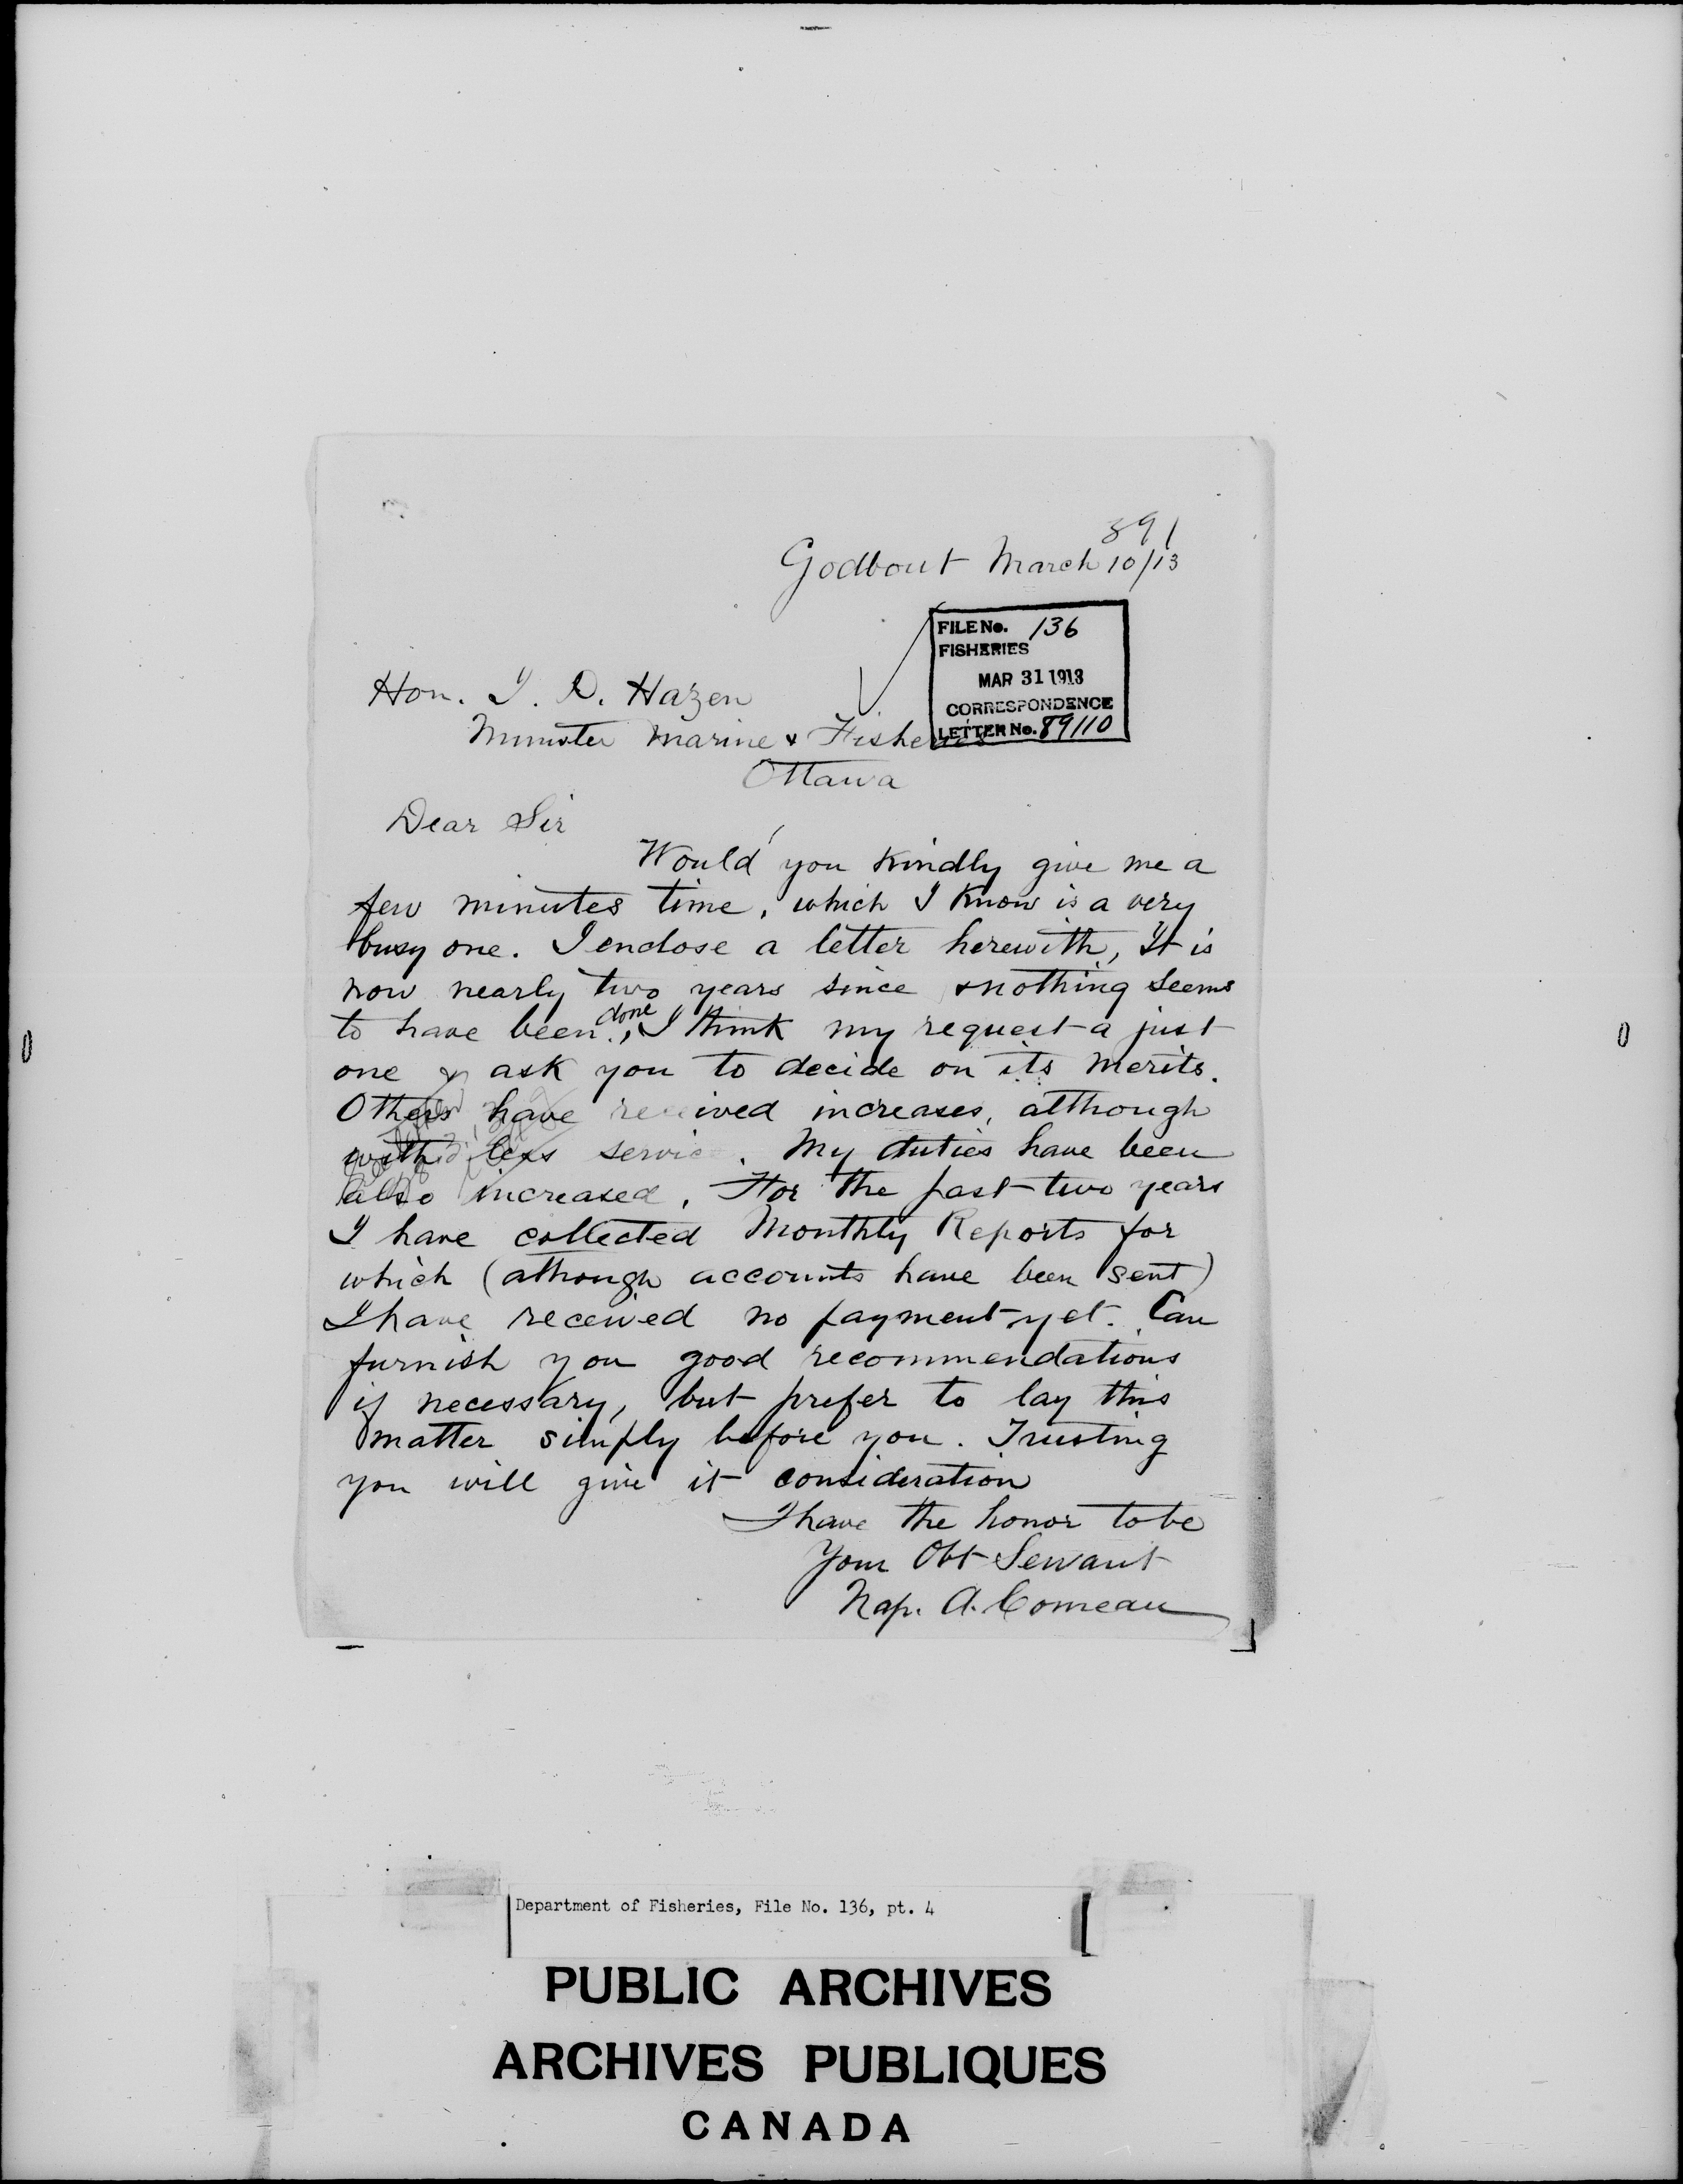 391
Godbout March 10/13
FILE No. 136
FISHERIES
MAR 31 1913
CORRESPONDENCE
LETTER No. 89110
Hon. J. D. Hazen
Minister Marine & Fisheries
Ottawa
Dear Sir
Would you kindly give me a
few minutes time, which I know is a very
busy one. I enclose a letter herewith, It is
now nearly two years since & nothing seems
to have been done, I think my request a just
one & ask you to decide on its merits.
Others have received increases, although
with less service. My duties have been
also increased. For the past two years
I have collected Monthly Reports for
which (athough accounts have been sent)
I have received no payment yet. Can
furnish you good recommendations
if necessary, but prefer to lay this
matter simply before you. Trusting
you will give it consideration
I have the honor to be
Your Obt Servant
Nap. A. Comeau
Department of Fisheries, File No. 136, pt. 4
PUBLIC ARCHIVES
ARCHIVES PUBLIQUES
CANADA